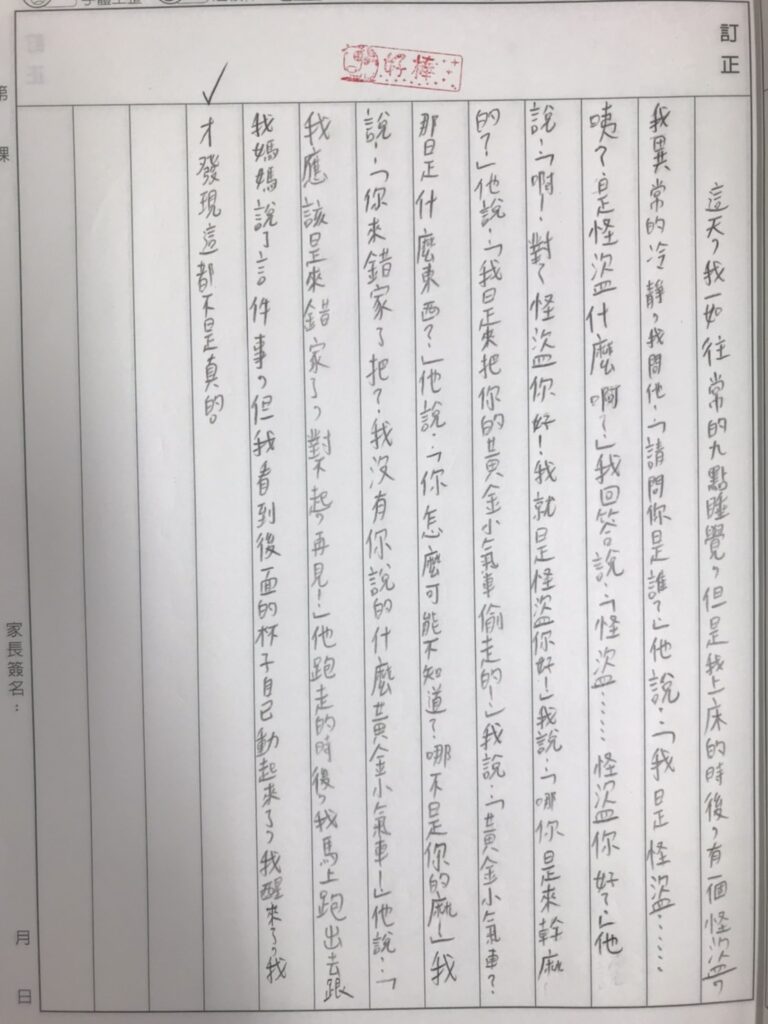 訂正
好棒
這天，我一如往常的九點睡覺，但是我上床的時後，有一個怪盜，
我異常的冷靜，我問他：「請問你是誰？」他說：「我是怪盜……
咦？是怪盜什麼啊？」我回答說：「怪盜……怪盜你好？」他
說：「啊！對了怪盜你好！我就是怪盜你好！」我說：「哪你是來幹麻
的？」他說：「我是來把你的黃金小氣車偷走的！」我說：「黃金小氣車？
那是什麼東西？」他說：「你怎麼可能不知道？哪不是你的麻！」我
說：「你來錯家了把？我沒有你說的什麼黃金小氣車！」他說：「
我應該是來錯家了，對不起，再見！」他跑走的時後，我馬上跑出去跟
我媽媽說了這件事，但我看到後面的杯子自己動起來了，我醒來了，我
才發現這都不是真的。
第 課
家長簽名：
月 日